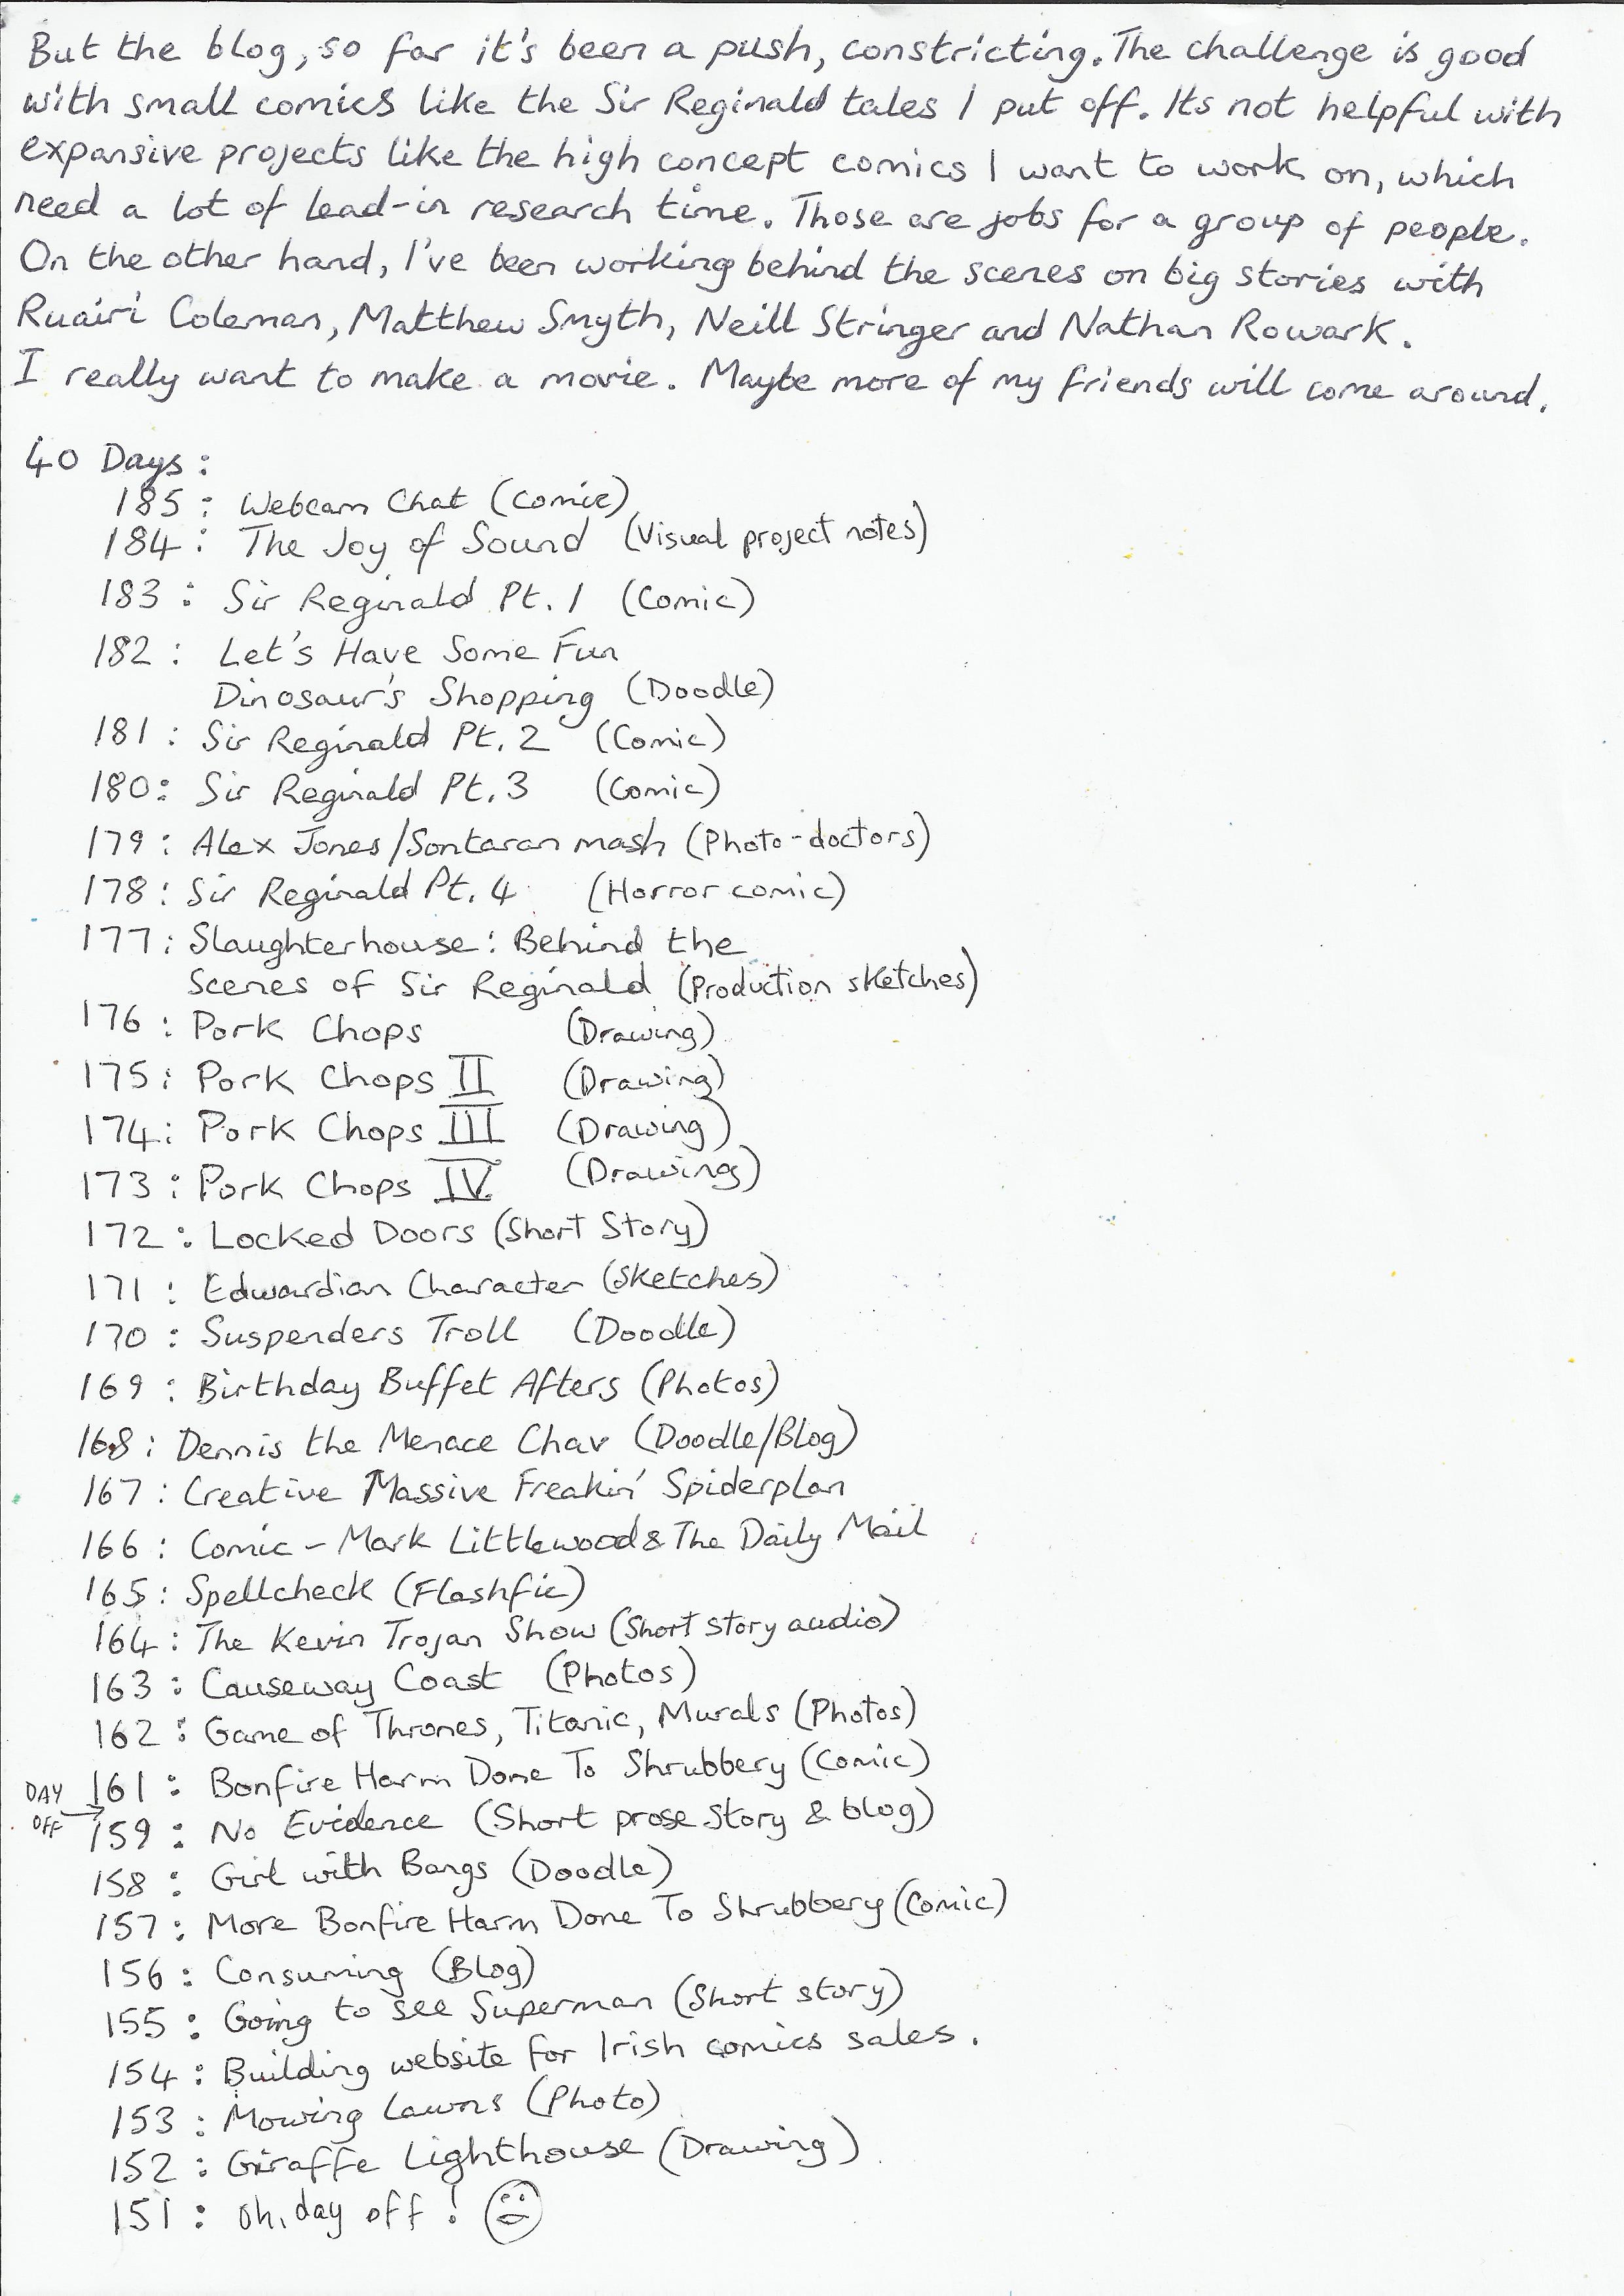 But the blog, so far it's been a push, constricting. The challenge is good
with small comics like the Sir Reginald tales I put off. Its not helpful with
expansive projects like the high concept comics I want to work on, which
need a lot of lead-in research time. Those are jobs for a group of people.
On the other hand, I've been working behind the scenes on big stories with
Ruairi Coleman, Matthew Smyth, Neill Stringer and Nathan Rowark.
I really want to make a movie. Maybe more of my friends will come around.
40 Days:
185: Webcam Chat (Comic)
184: The Joy of Sound (Visual project notes)
183: Sir Reginald Pt. 1 (Comic)
182: Let's Have Some Fun
Dinosaur's Shopping (Doodle)
181: Sir Reginald Pt. 2 (Comic)
180: Sir Reginald Pt. 3 (Comic)
179: Alex Jones/Sontaran mash (Photo-doctors)
178: Sir Reginald Pt. 4 (Horror comic)
177: Slaughterhouse: Behind the
Scenes of Sir Reginald (Production sketches)
176: Pork Chops (Drawing)
175: Pork Chops II (Drawing)
174: Pork Chops III (Drawing)
173: Pork Chops IV (Drawings)
172: Locked Doors (Short Story)
171: Edwardian Character (Sketches)
170: Suspenders Troll (Doodle)
169: Birthday Buffet Afters (Photos)
168: Dennis the Menace Chav (Doodle/Blog)
167: Creative Massive Freakin' Spiderplan
166: Comic - Mark Littlewood & The Daily Mail
165: Spellcheck (Flashfic)
164: The Kevin Trojan Show (Short story audio)
163: Causeway Coast (Photos)
162: Game of Thrones, Titanic, Murals (Photos)
161: Bonfire Harm Done To Shrubbery (Comic)
DAY OFF →
159: No Evidence (Short prose story & blog)
158: Girl with Bangs (Doodle)
157: More Bonfire Harm Done To Shrubbery (Comic)
156: Consuming (Blog)
155: Going to see Superman (Short story)
154: Building website for Irish comics sales.
153: Mowing Lawns (Photo)
152: Giraffe Lighthouse (Drawing)
151: oh, day off!